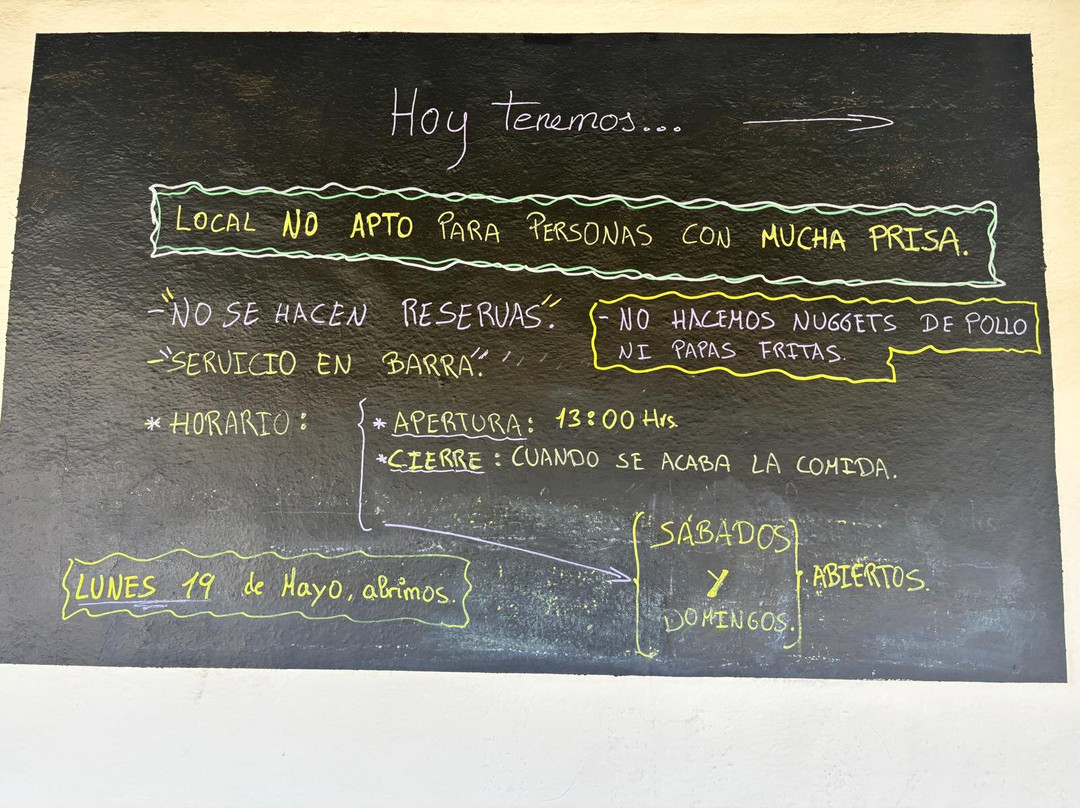 Hoy tenemos...
LOCAL NO APTO PARA PERSONAS CON MUCHA PRISA.
-"NO SE HACEN RESERVAS."
-"SERVICIO EN BARRA".
- NO HACEMOS NUGGETS DE POLLO
NI PAPAS FRITAS.
* HORARIO:
* APERTURA: 13:00 Hrs.
* CIERRE: CUANDO SE ACABA LA COMIDA.
SÁBADOS
Y
DOMINGOS.
ABIERTOS.
LUNES 19 de Mayo, abrimos.